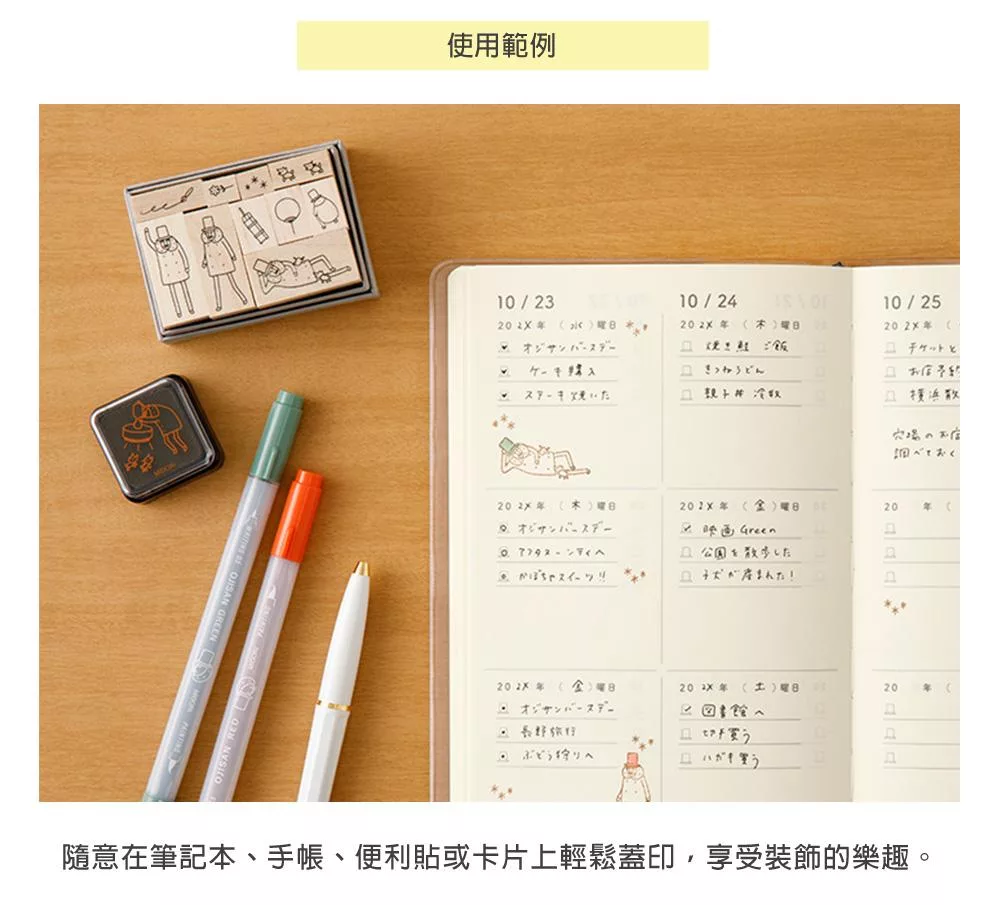 使用範例
10 / 23
10 / 24
10 / 25
202X年 (水)曜日
オジサンバースデー
ケーキ購入
ステーキ焼いた
202X年 (木)曜日
焼き鮭 ご飯
きつねうどん
親子丼
20 2X 年 (
チケットと
お店予約
横浜散
穴場のお店
調べておく
202X年 (木)曜日
オジサンバースデー
アフタヌーンティへ
かぼちゃスイーツ!!
202X年 (金)曜日
映画 Green
公園を散歩した
子犬が産まれた!
20 年 (
202X年 (金)曜日
オジサンバースデー
長野旅行
ぶどう狩りへ
202X年 (土)曜日
図書館へ
切手買う
ハガキ買う
20 年 (
MIDORI
OJISAN GREEN
MIDORI
PAINTING
MIDORI
OJISAN RED
隨意在筆記本、手帳、便利貼或卡片上輕鬆蓋印，享受裝飾的樂趣。